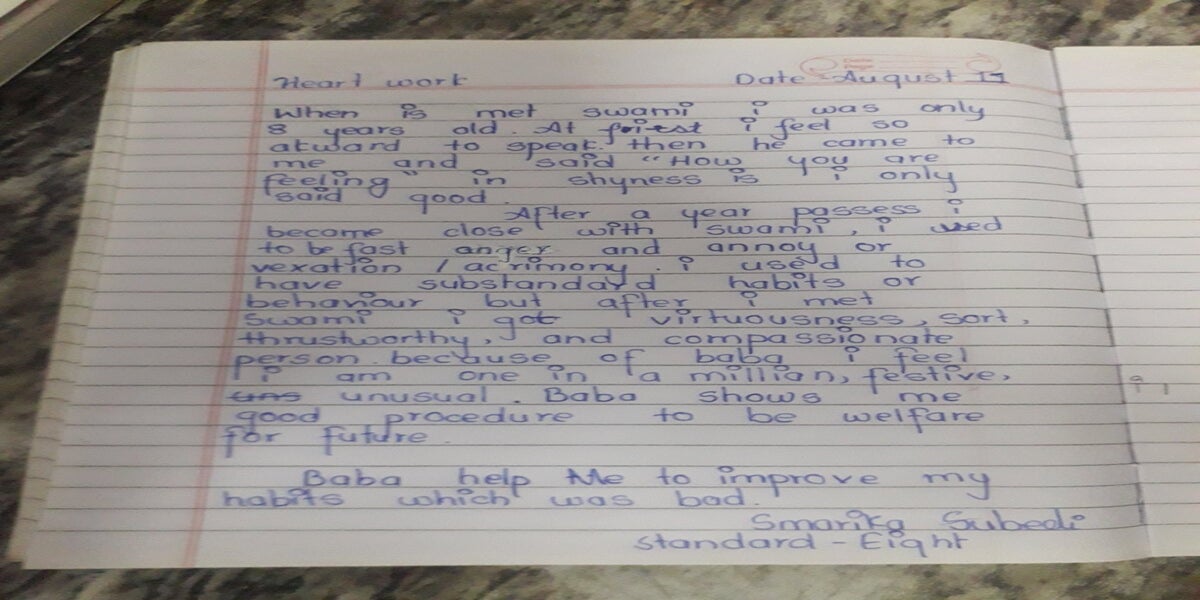 Heart work Date August 11
When is met swami i was only
8 years old. At first i feel so
akward to speak. then he came to
me and said "How you are
feeling" in shyness is i only
said good.
After a year passess i
become close with swami, i used
to be fast anger and annoy or
vexation / acrimony. i used to
have substandard habits or
behaviour but after i met
swami i got virtuousness, sort,
thrustworthy, and compassionate
person. because of baba i feel
i am one in a million, festive,
uns unusual. Baba shows me
good procedure to be welfare
for future.
Baba help Me to improve my
habits which was bad.
Smarika Subedi
Standard - Eight